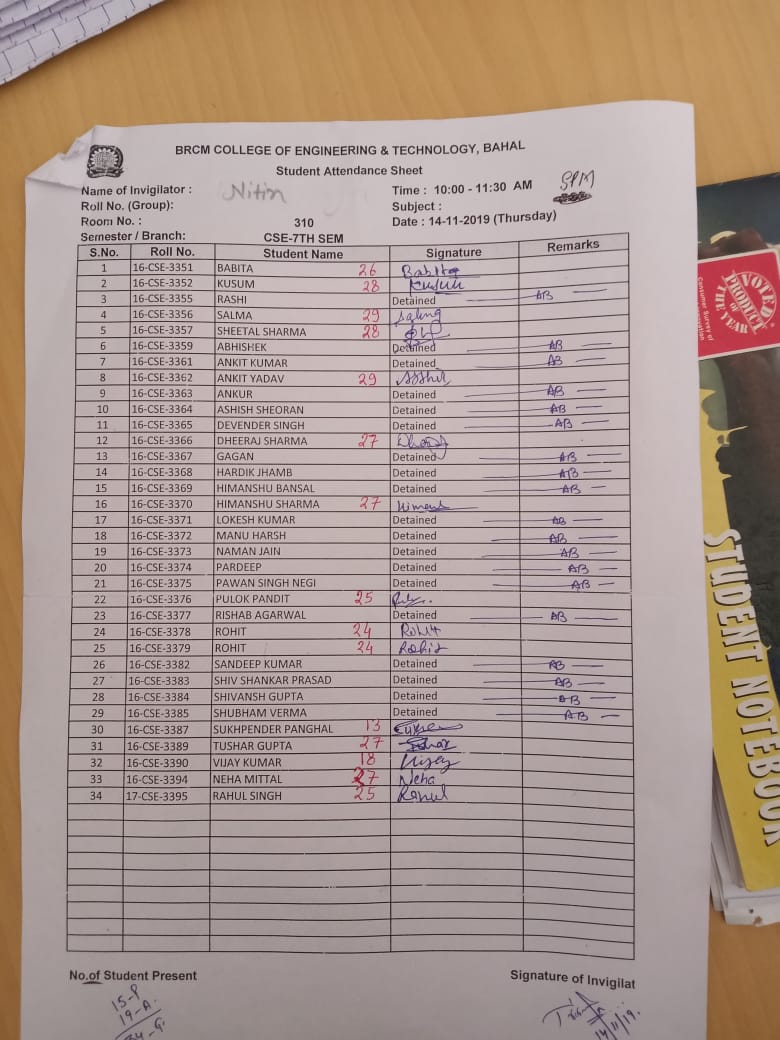 BRCM COLLEGE OF ENGINEERING & TECHNOLOGY, BAHAL
Student Attendance Sheet
Name of Invigilator : Nitin Time : 10:00 - 11:30 AM SPM
Roll No. (Group): Subject :
Room No. : 310 Date : 14-11-2019 (Thursday)
Semester / Branch: CSE-7TH SEM
S.No. Roll No. Student Name Signature Remarks
1 16-CSE-3351 BABITA 26 Babita
2 16-CSE-3352 KUSUM 28 Kusum
3 16-CSE-3355 RASHI Detained AB
4 16-CSE-3356 SALMA 29
5 16-CSE-3357 SHEETAL SHARMA 28
6 16-CSE-3359 ABHISHEK Detained AB
7 16-CSE-3361 ANKIT KUMAR Detained AB
8 16-CSE-3362 ANKIT YADAV 29
9 16-CSE-3363 ANKUR Detained AB
10 16-CSE-3364 ASHISH SHEORAN Detained AB
11 16-CSE-3365 DEVENDER SINGH Detained AB
12 16-CSE-3366 DHEERAJ SHARMA 27
13 16-CSE-3367 GAGAN Detained AB
14 16-CSE-3368 HARDIK JHAMB Detained AB
15 16-CSE-3369 HIMANSHU BANSAL Detained AB
16 16-CSE-3370 HIMANSHU SHARMA 27
17 16-CSE-3371 LOKESH KUMAR Detained AB
18 16-CSE-3372 MANU HARSH Detained AB
19 16-CSE-3373 NAMAN JAIN Detained AB
20 16-CSE-3374 PARDEEP Detained AB
21 16-CSE-3375 PAWAN SINGH NEGI Detained AB
22 16-CSE-3376 PULOK PANDIT 25
23 16-CSE-3377 RISHAB AGARWAL Detained AB
24 16-CSE-3378 ROHIT 24 Rohit
25 16-CSE-3379 ROHIT 24 Rohit
26 16-CSE-3382 SANDEEP KUMAR Detained AB
27 16-CSE-3383 SHIV SHANKAR PRASAD Detained AB
28 16-CSE-3384 SHIVANSH GUPTA Detained AB
29 16-CSE-3385 SHUBHAM VERMA Detained AB
30 16-CSE-3387 SUKHPENDER PANGHAL 13
31 16-CSE-3389 TUSHAR GUPTA 27
32 16-CSE-3390 VIJAY KUMAR 18 Vijay
33 16-CSE-3394 NEHA MITTAL 27 Neha
34 17-CSE-3395 RAHUL SINGH 25 Rahul
No.of Student Present Signature of Invigilat
15-P
19-A.
14/11/19.
VOTED
PRODUCT
OF
THE YEAR
Consumer Survey of
STUDENT NOTEBOOK